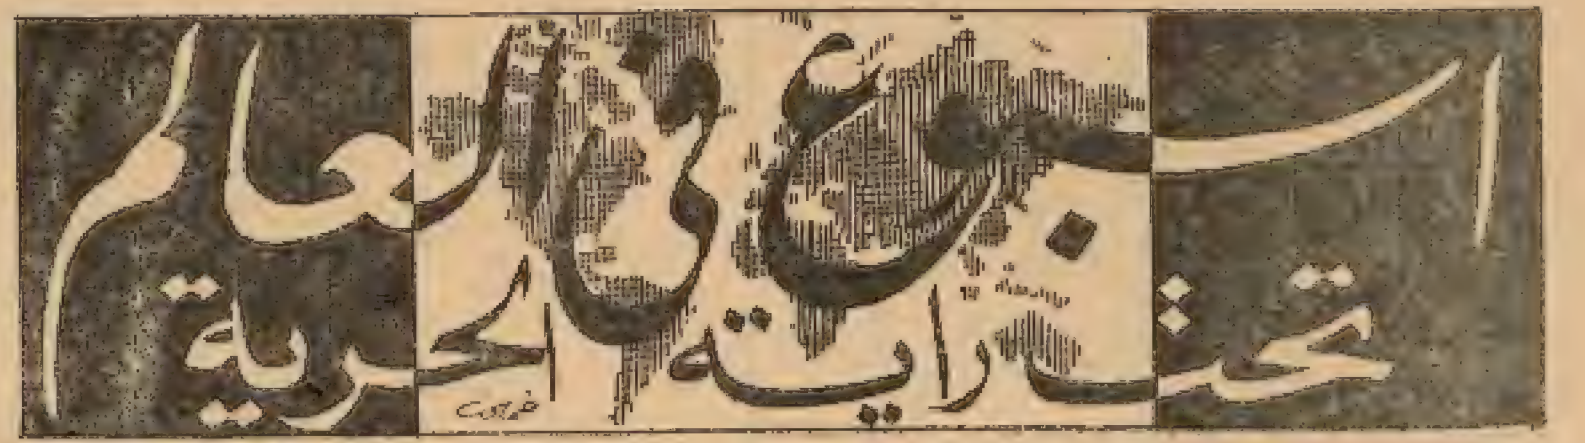 اسبوع في العالم
تحت راية الحرية